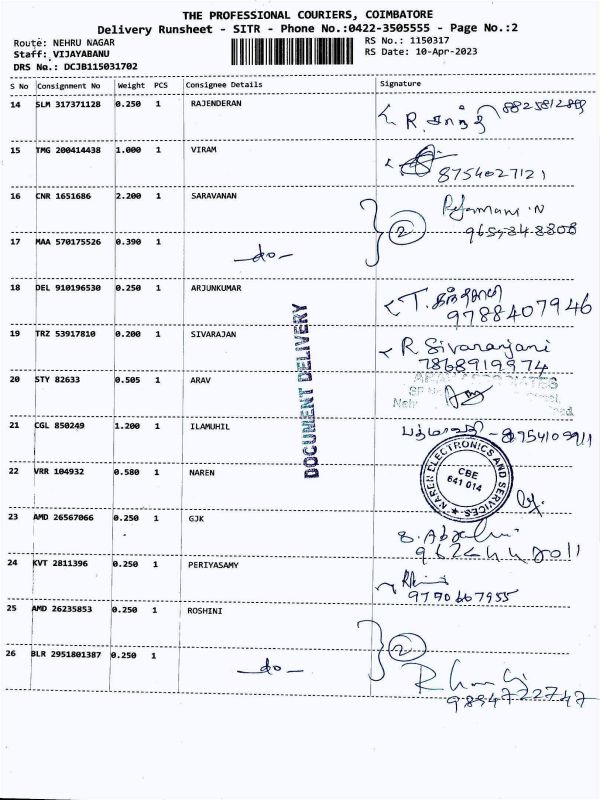 THE PROFESSIONAL COURIERS, COIMBATORE
Delivery Runsheet - SITR - Phone No.:0422-3505555 - Page No.:2
Route: NEHRU NAGAR RS No.: 1150317
Staff: VIJAYABANU RS Date: 10-Apr-2023
DRS No.: DCJB115031702
S No Consignment No Weight PCS Consignee Details Signature
14 SLM 317371128 0.250 1 RAJENDERAN R.
15 TMG 200414438 1.000 1 VIRAM
8754027121
16 CNR 1651686 2.200 1 SARAVANAN
2
17 MAA 570175526 0.390 1 -do-
18 DEL 910196530 0.250 1 ARJUNKUMAR T.
9788407946
19 TRZ 53917810 0.200 1 SIVARAJAN R Sivaranjani
7868919974
20 STY 82633 0.505 1 ARAV
DOCUMENT DELIVERY
21 CGL 850249 1.200 1 ILAMUHIL
22 VRR 104932 0.580 1 NAREN
NAREN ELECTRONICS AND SERVICES
CBE
641 014
23 AMD 26567066 0.250 1 GJK
24 KVT 2811396 0.250 1 PERIYASAMY
9770667955
25 AMD 26235853 0.250 1 ROSHINI
2
26 BLR 2951801387 0.250 1 -do-
9894722747